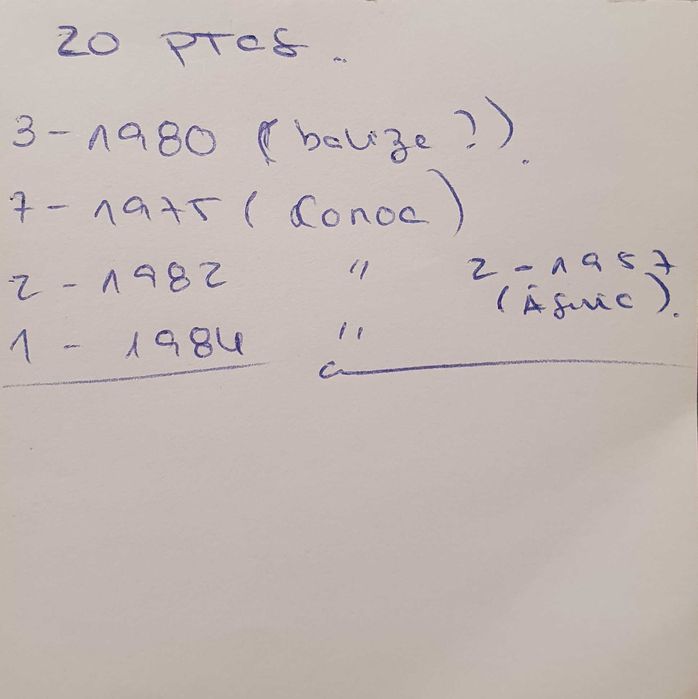 20 PTas.
3 - 1980 (balize?).
7 - 1975 (Corona)
2 - 1982 " 2 - 1957
(Águila).
1 - 1984 "